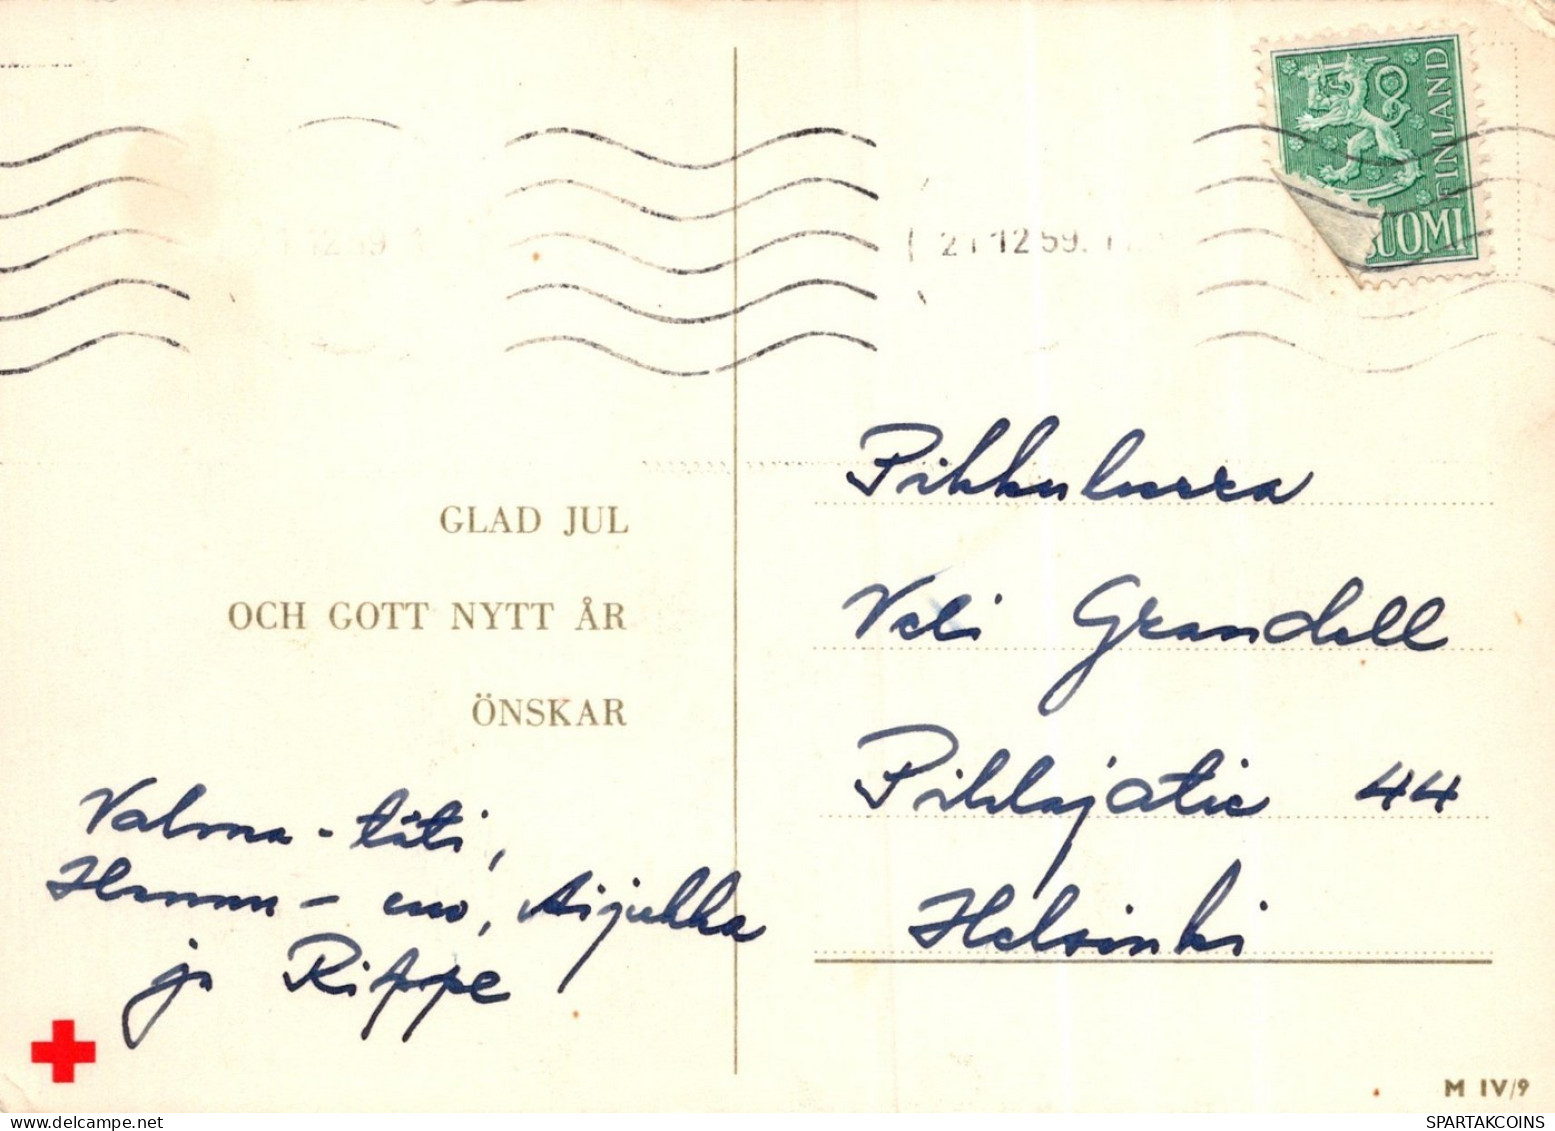 FINLAND
SUOMI
21 12 59
GLAD JUL
OCH GOTT NYTT ÅR
ÖNSKAR
Valma-täti,
Hannu-eno, Aijukka
ja Rippe
Pikkuherra
Veli Grandell
Pihlajatie 44
Helsinki
M IV/9
WWW.DELCAMPE.NET
SPARTAKCOINS